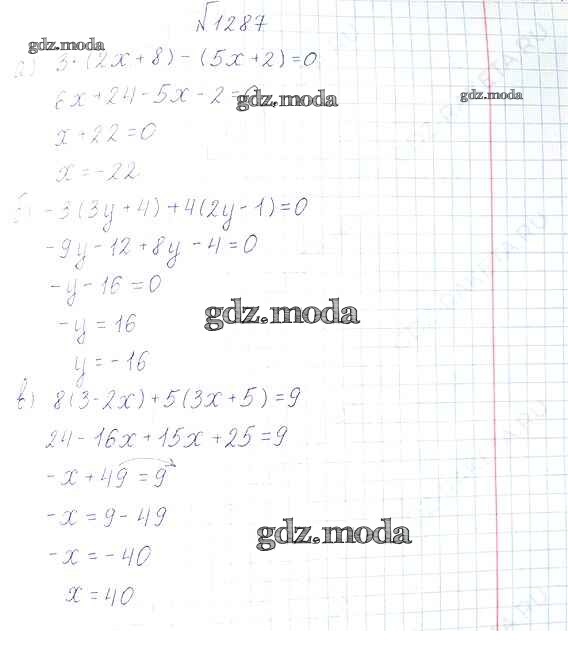 №1287
gdz.moda
а) 3·(2x+8)-(5x+2)=0
6x+24-5x-2=0
gdz.moda
gdz.moda
x+22=0
x=-22
б) -3(3y+4)+4(2y-1)=0
-9y-12+8y-4=0
-y-16=0
gdz.moda
-y=16
y=-16
в) 8(3-2x)+5(3x+5)=9
24-16x+15x+25=9
-x+49=9
-x=9-49
gdz.moda
-x=-40
x=40